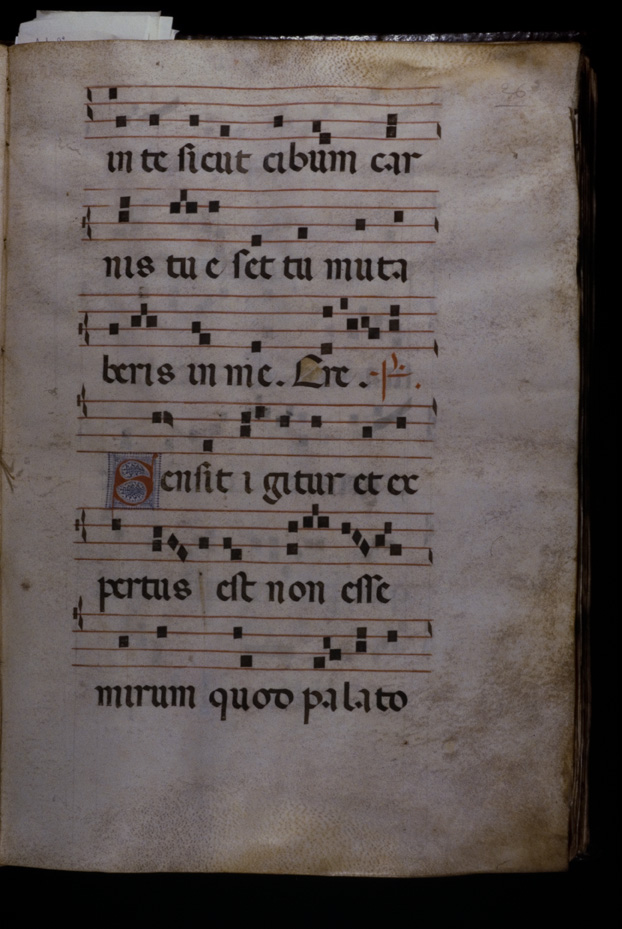 in te sicut cibum car
nis tu e set tu muta
beris in me. Ere. P.
Sensit i gitur et ex
pertus est non esse
mirum quod palato